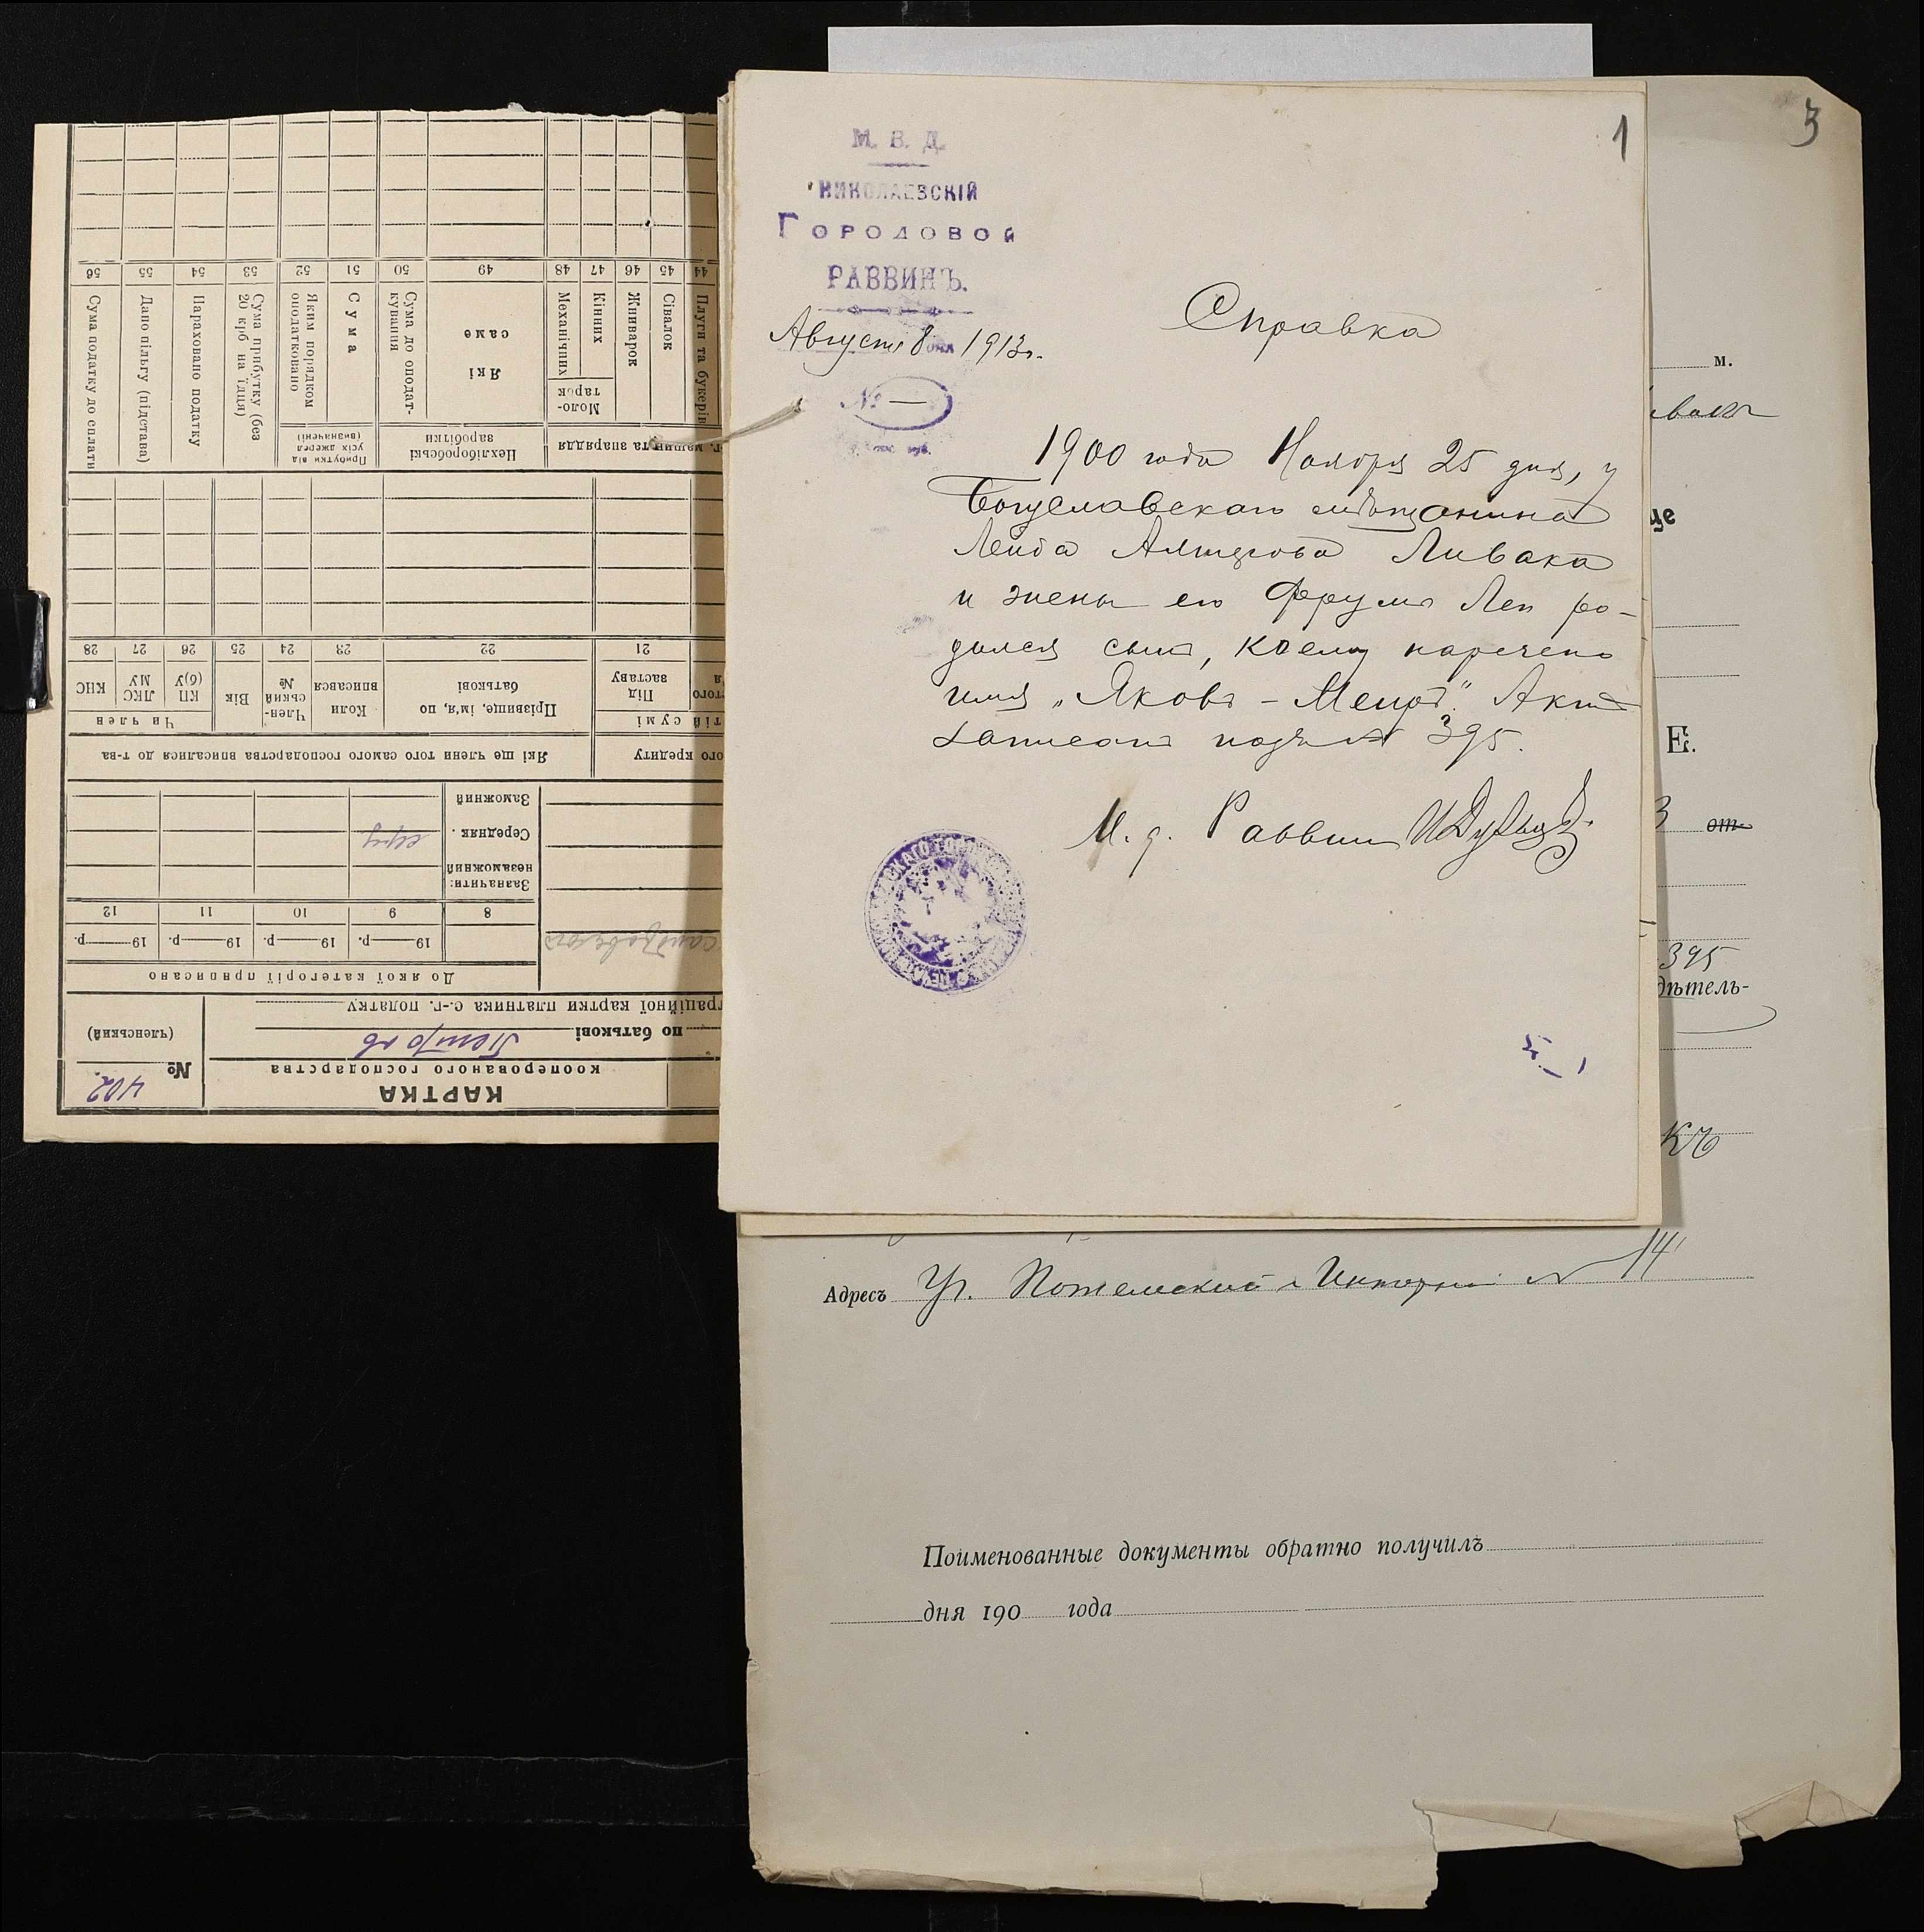 М. В. Д.
НИКОЛАЕВСКІЙ
ГОРОДОВОЙ
РАВВИНЪ.
Августа 8 дня 1913 г.
№ —
1
Справка
1900 года Ноября 25 дня, у
Богуславскаго мѣщанина
Лейба Алтерова Ливака
и жены его Фрумы Леи ро-
дился сынъ, коему наречено
имя „Яковъ - Меиръ". Актъ
записанъ подъ № 395.
И. д. Раввина
3
м.
це
Е.
3 от
395
дѣтель-
къ
Адресъ Уг. Потемской и № 14
Поименованные документы обратно получилъ
дня 190 года
КАРТКА
кооперованого господарства
№ 402
(членський)
по батькові Петров
траційної картки платника с.-г. податку
До якої категорії приписано
19 р. 19 р. 19 р. 19 р.
8 9 10 11 12
Зазначити:
незаможний
Середняк
Заможний
ого кредиту
Які ще члени того самого господарства вписалися до т-ва
тій сумі
Чи член
Під заставу
Прізвище, ім'я, по батькові
Коли вписався
Член-ський №
Вік
КП (б)У
ЛКС МУ
КНС
21 22 23 24 25 26 27 28
г. машин та знаряддя
Нехліборобські заробітки
Прибутки від усіх джерел (визначені)
Плуги та букерів
Сівалок
Жниварок
Моло-тарок
Кінних
Механічних
Які саме
Сума до оподат-кування
Сума
Яким порядком оподатковано
Сума прибутку (без 20 крб на їдця)
Нараховано податку
Дано пільгу (підстава)
Сума податку до сплати
44 45 46 47 48 49 50 51 52 53 54 55 56